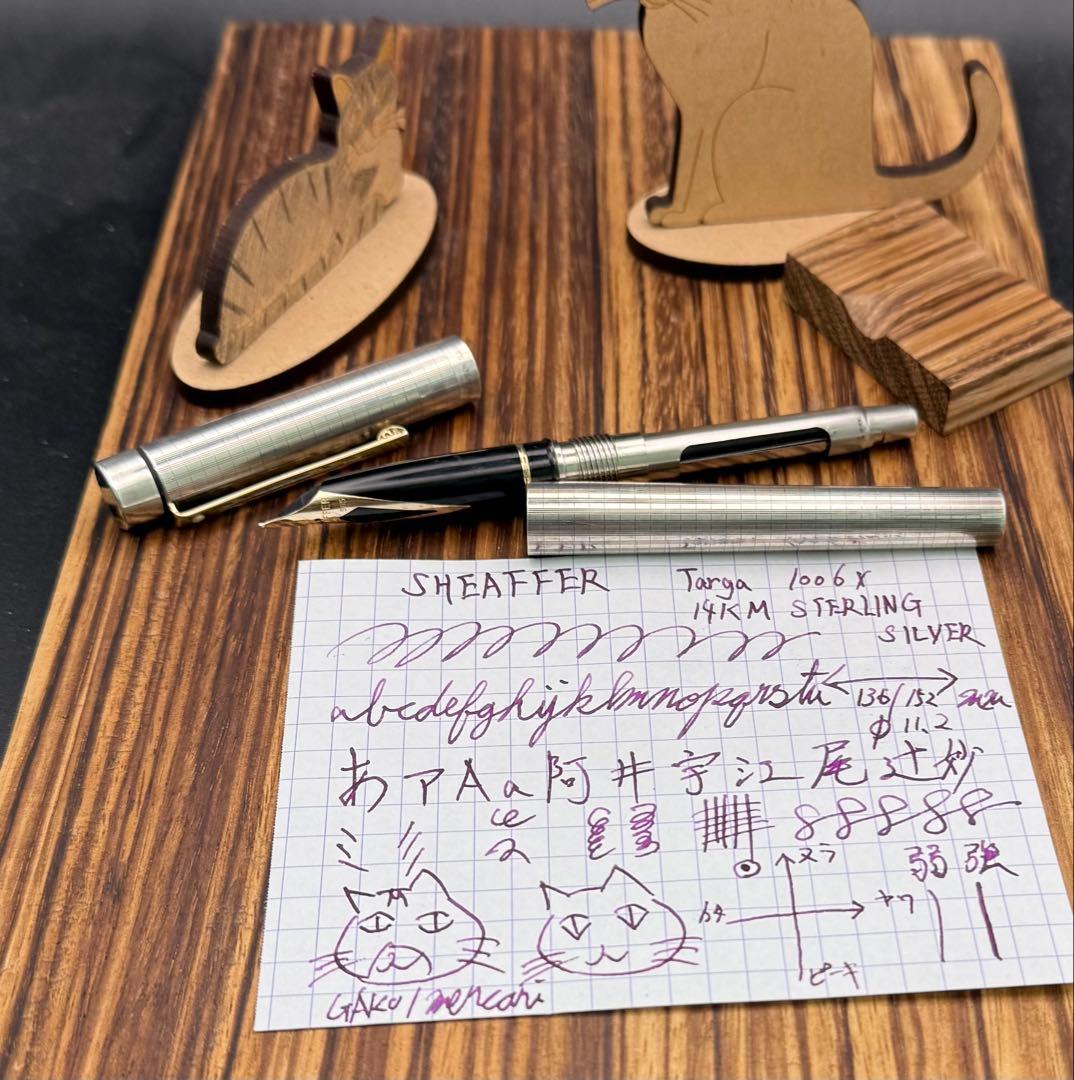 SHEAFFER Targa 1006X
14K M STERLING
SILVER
abcdefghijklmnopqrstu 136/152 mm
φ 11.2
あ ア A a 阿 井 宇 江 尾 辻 妙
ヌラ 弱 強
カタ ヤワ
ピーキ
GAKU/mercari